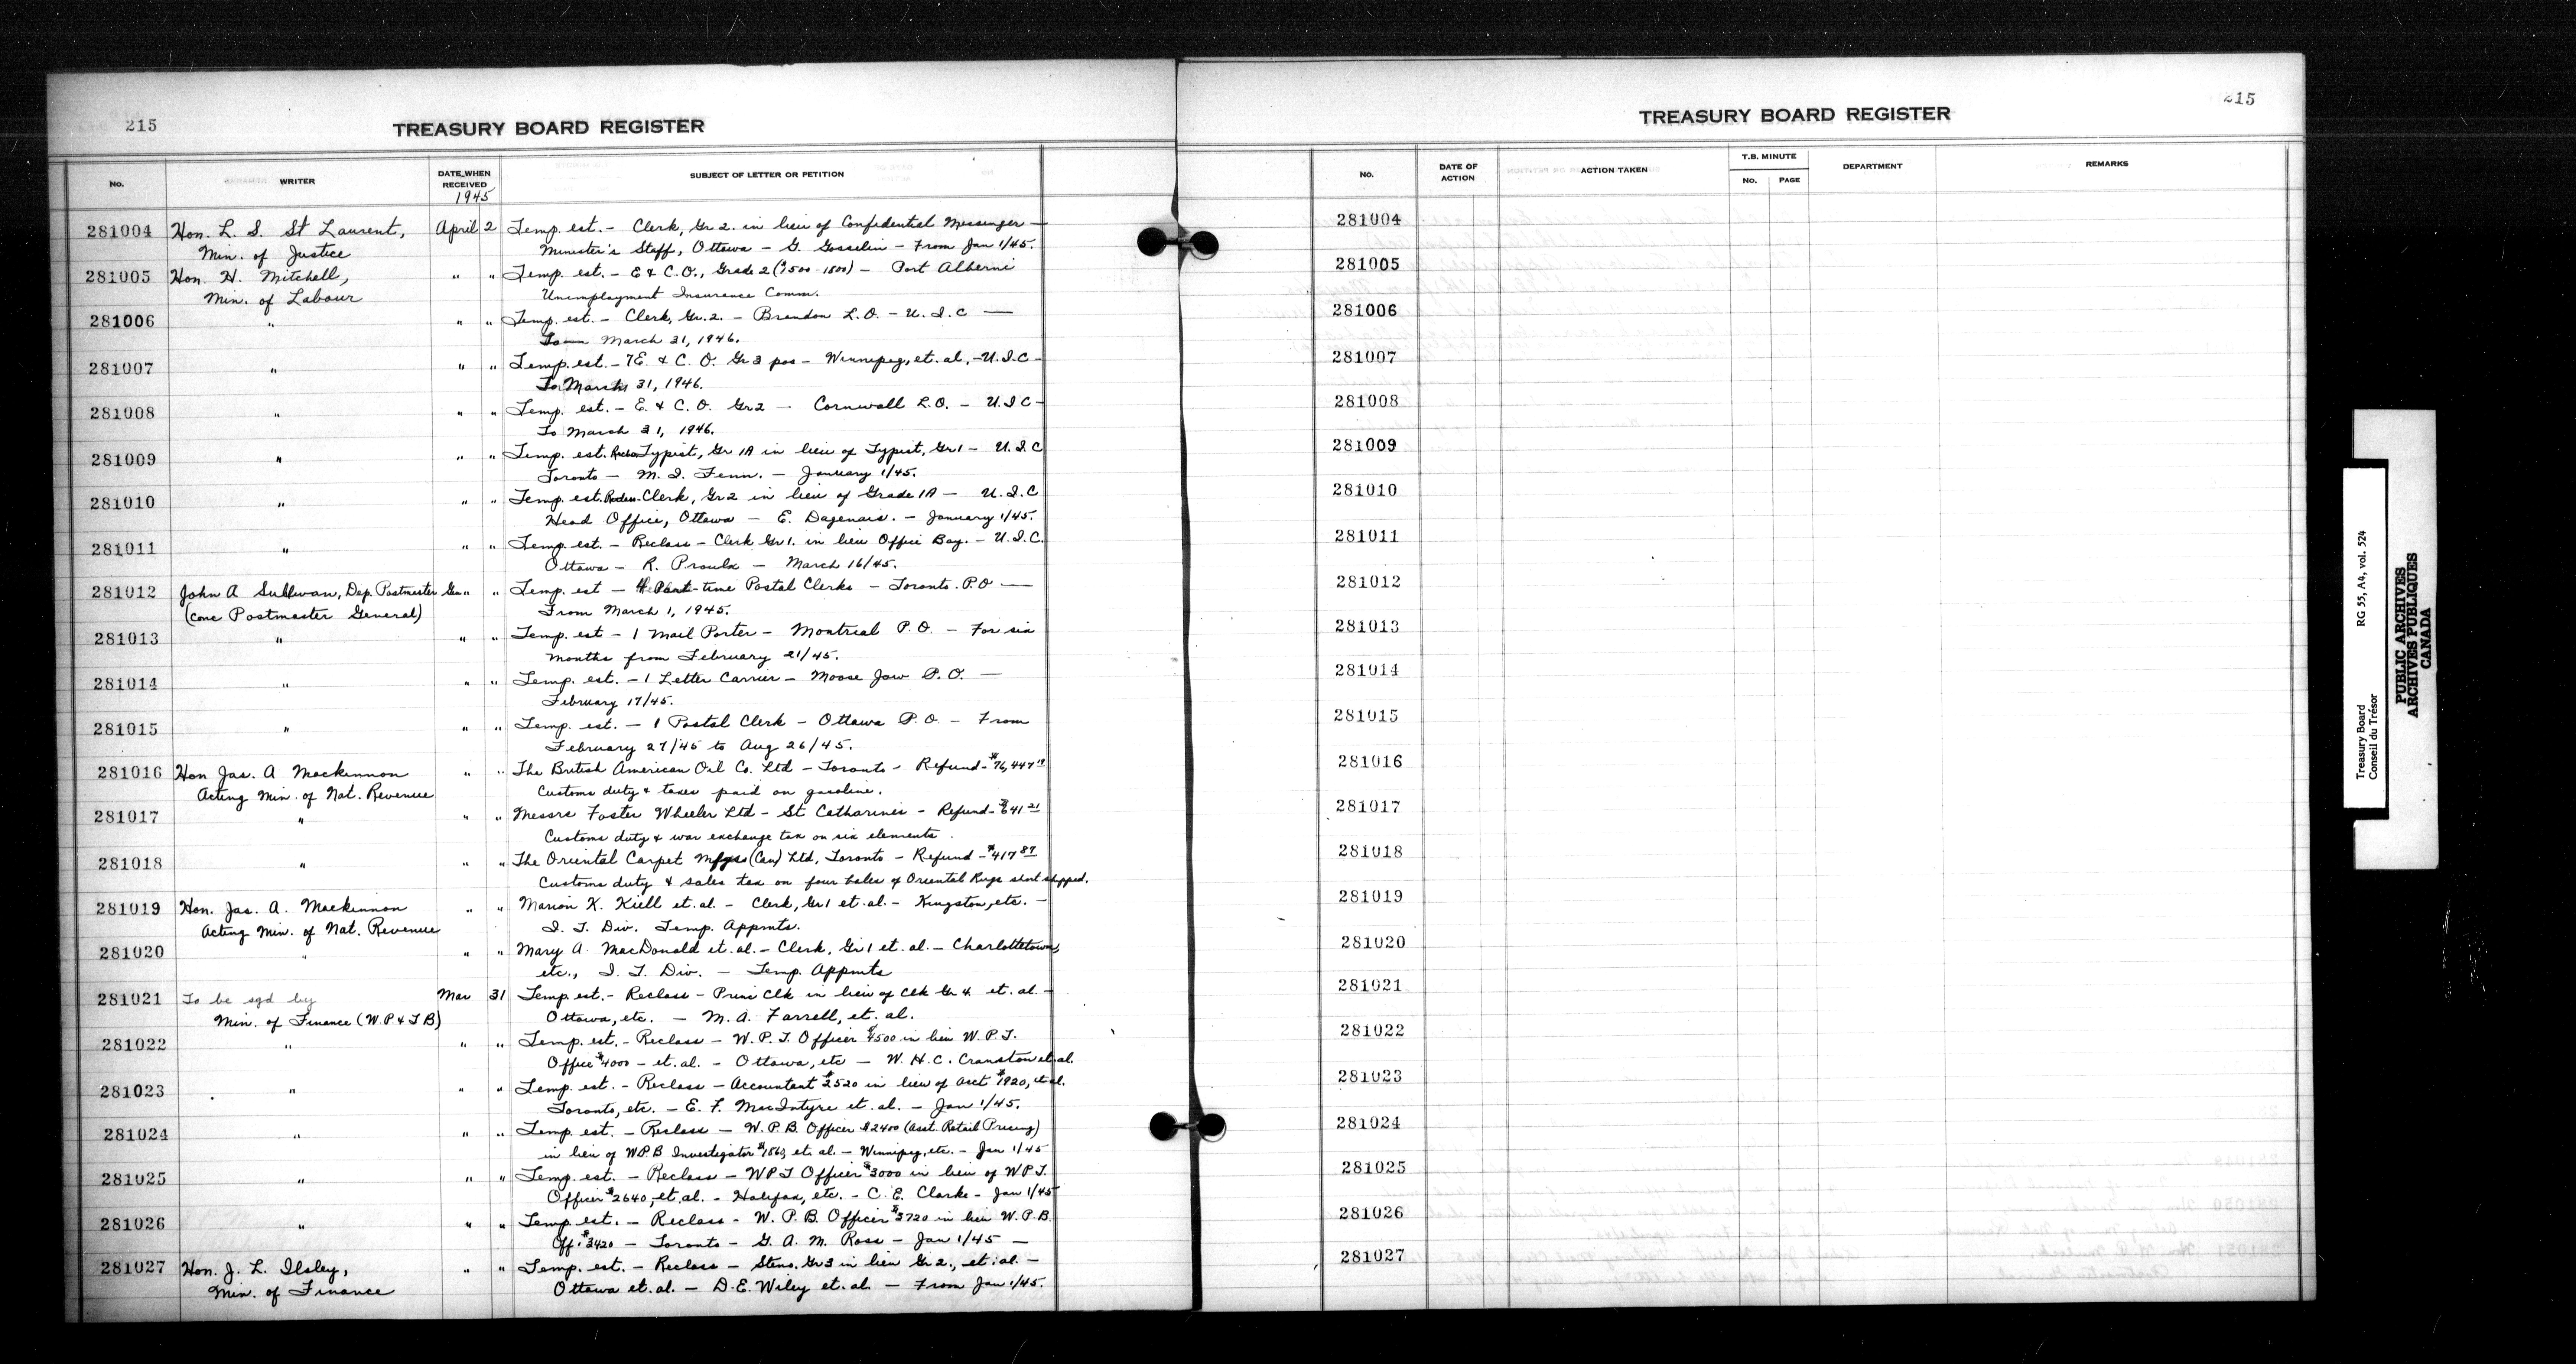 215
TREASURY BOARD REGISTER
No. WRITER DATE WHEN RECEIVED SUBJECT OF LETTER OR PETITION
1945
281004 Hon. L. S. St Laurent, April 2 Temp. est. - Clerk, Gr 2. in lieu of Confidential Messenger —
Min. of Justice Minister's Staff, Ottawa - G. Gosselin - From Jan 1/45.
281005 Hon. H. Mitchell, " " Temp. est. - E & C.O., Grade 2 ($1500-1800) - Port Alberni
Min. of Labour Unemployment Insurance Comm.
281006 " " " Temp. est. - Clerk, Gr. 2. - Brandon L.O. - U.I.C —
To March 31, 1946.
281007 " " " Temp. est. - 7 E. & C. O. Gr 3 pos - Winnipeg, et. al, - U.I.C -
To March 31, 1946.
281008 " " " Temp. est. - E. & C. O. Gr 2 - Cornwall L.O. - U.I.C -
To March 31, 1946.
281009 " " " Temp. est. Reclass Typist, Gr 1A in lieu of Typist, Gr 1 - U.I.C
Toronto - M. I. Fenn. - January 1/45.
281010 " " " Temp. est. Reclass. Clerk, Gr 2 in lieu of Grade 1A - U.I.C
Head Office, Ottawa - E. Dagenais. - January 1/45.
281011 " " " Temp. est. - Reclass - Clerk Gr 1. in lieu Office Boy. - U.I.C.
Ottawa - R. Proulx - March 16/45.
281012 John A Sullivan, Dep. Postmaster Gen " " Temp. est - 4 Part-time Postal Clerks - Toronto. P.O —
(conc Postmaster General) From March 1, 1945.
281013 " " " Temp. est - 1 Mail Porter - Montreal P.O. - For six
months from February 21/45.
281014 " " " Temp. est. - 1 Letter Carrier - Moose Jaw P.O. —
February 17/45.
281015 " " " Temp. est. - 1 Postal Clerk - Ottawa P.O. - From
February 27/45 to Aug 26/45.
281016 Hon Jas. A Mackinnon " " The British American Oil Co. Ltd - Toronto - Refund - $76,447
Acting Min. of Nat. Revenue Customs duty & taxes paid on gasoline.
281017 " " " Messrs Foster Wheeler Ltd - St Catharines - Refund - $641 21
Customs duty & war exchange tax on six elements.
281018 " " " The Oriental Carpet Mfgrs (Can) Ltd, Toronto - Refund - $417 87
Customs duty & sales tax on four bales of Oriental Rugs short shipped.
281019 Hon. Jas. A. Mackinnon " " Marion K. Kiell et. al - Clerk, Gr 1 et. al. - Kingston, etc. -
Acting Min. of Nat. Revenue I. T. Div. Temp. Appmts.
281020 " " " Mary A. MacDonald et. al. - Clerk, Gr 1 et. al. - Charlottetown,
etc., I. T. Div. - Temp. Appmts
281021 To be sgd by Mar 31 Temp. est. - Reclass - Prin Clk in lieu of Clk Gr 4. et. al. -
Min. of Finance (W.P. & T B) Ottawa, etc. - M. A. Farrell, et. al.
281022 " " " Temp. est. - Reclass - W. P. T. Officer $4500 in lieu W. P. T.
Office $4000 - et. al. - Ottawa, etc - W. H. C. Cranston et. al.
281023 " " " Temp. est. - Reclass - Accountant $2520 in lieu of Acct $1920, et al.
Toronto, etc. - E. F. MacIntyre et. al. - Jan 1/45.
281024 " " " Temp. est. - Reclass - W. P. B. Officer $2400 (Asst. Retail Pricing)
in lieu of W.P.B Investigator et. al. - Winnipeg, etc. - Jan 1/45
281025 " " " Temp. est. - Reclass - W P T Officer $3000 in lieu of W P T.
Officer $2640, et. al. - Halifax, etc. - C. E. Clarke - Jan 1/45
281026 " " " Temp. est. - Reclass - W. P. B. Officer $3720 in lieu W. P. B.
Off. $3420 - Toronto - G. A. M. Ross - Jan 1/45 —
281027 Hon. J. L. Ilsley, " " Temp. est. - Reclass - Steno. Gr 3 in lieu Gr 2., et. al. -
Min. of Finance Ottawa et. al. - D. E. Wiley et. al. - From Jan 1/45.
215
TREASURY BOARD REGISTER
No. DATE OF ACTION ACTION TAKEN T.B. MINUTE No. PAGE DEPARTMENT REMARKS
281004
281005
281006
281007
281008
281009
281010
281011
281012
281013
281014
281015
281016
281017
281018
281019
281020
281021
281022
281023
281024
281025
281026
281027
Treasury Board RG 55, A4, vol. 524
Conseil du Trésor
PUBLIC ARCHIVES
ARCHIVES PUBLIQUES
CANADA